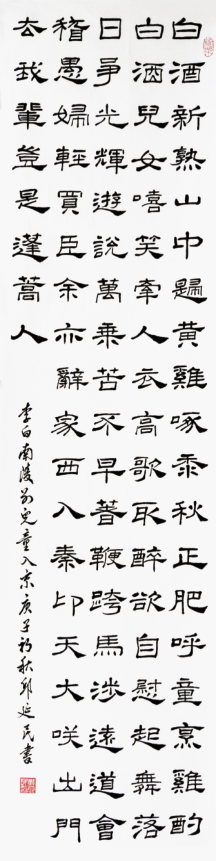 白酒新熟山中歸黃雞啄黍秋正肥呼童烹雞酌
白酒兒女嘻笑牽人衣高歌取醉欲自慰起舞落
日爭光輝遊說萬乘苦不早著鞭跨馬涉遠道會
稽愚婦輕買臣余亦辭家西入秦卬天大咲出門
去我輩豈是蓬蒿人
李白南陵別兒童入京庚子初秋邱延民書